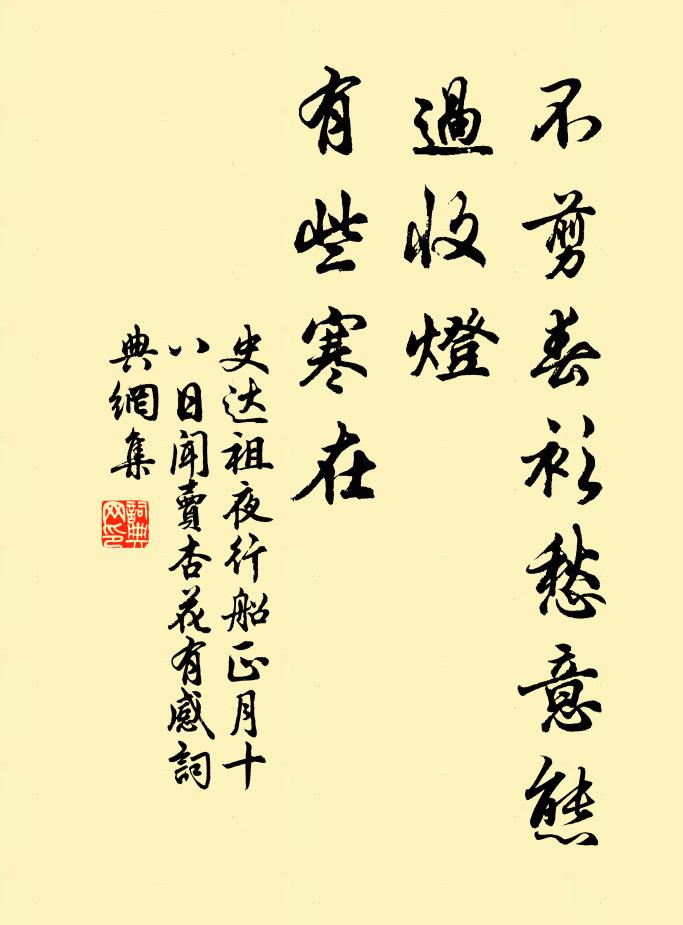 不剪春衫愁意態
過收燈
有些寒在
史达祖夜行船正月十
八日闻賣杏花有感詞
典網集
詞典
网印